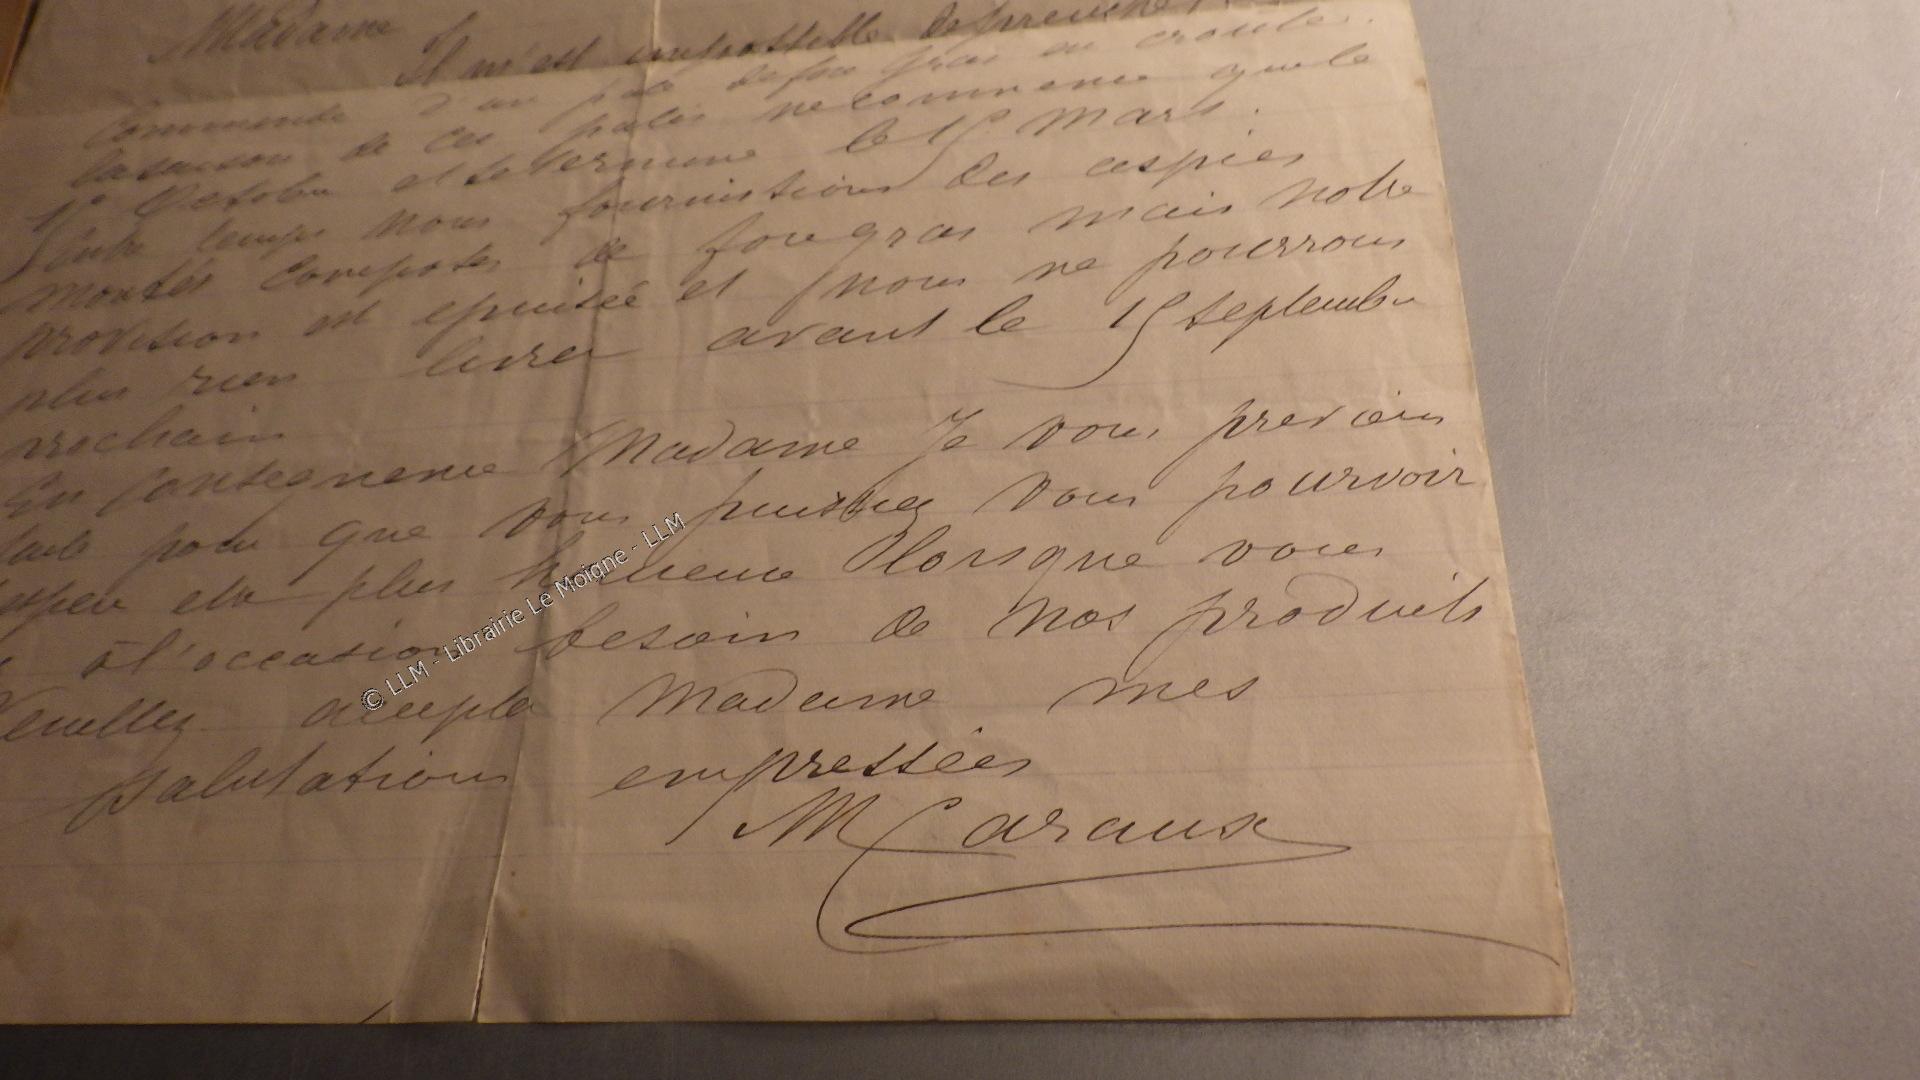 Madame
Il m'est impossible de prendre
Commande d'un pâté de foie gras en croute.
la saison de ces pâtés ne commence que le
1er Octobre et se termine le 15 Mars.
Entre temps nous fournissions des aspies
montés composés de foie gras mais notre
provision est epuiseé et nous ne pourrons
plus rien livrer avant le 15 septembre
prochain
En Consequence Madame Je vous previens
pour que vous puissiez vous pourvoir
plus lorsque vous
à l'occasion besoin de nos produits
Veuillez accepter Madame mes
salutations empressées
M Caraux
© LLM - Librairie Le Moigne - LLM